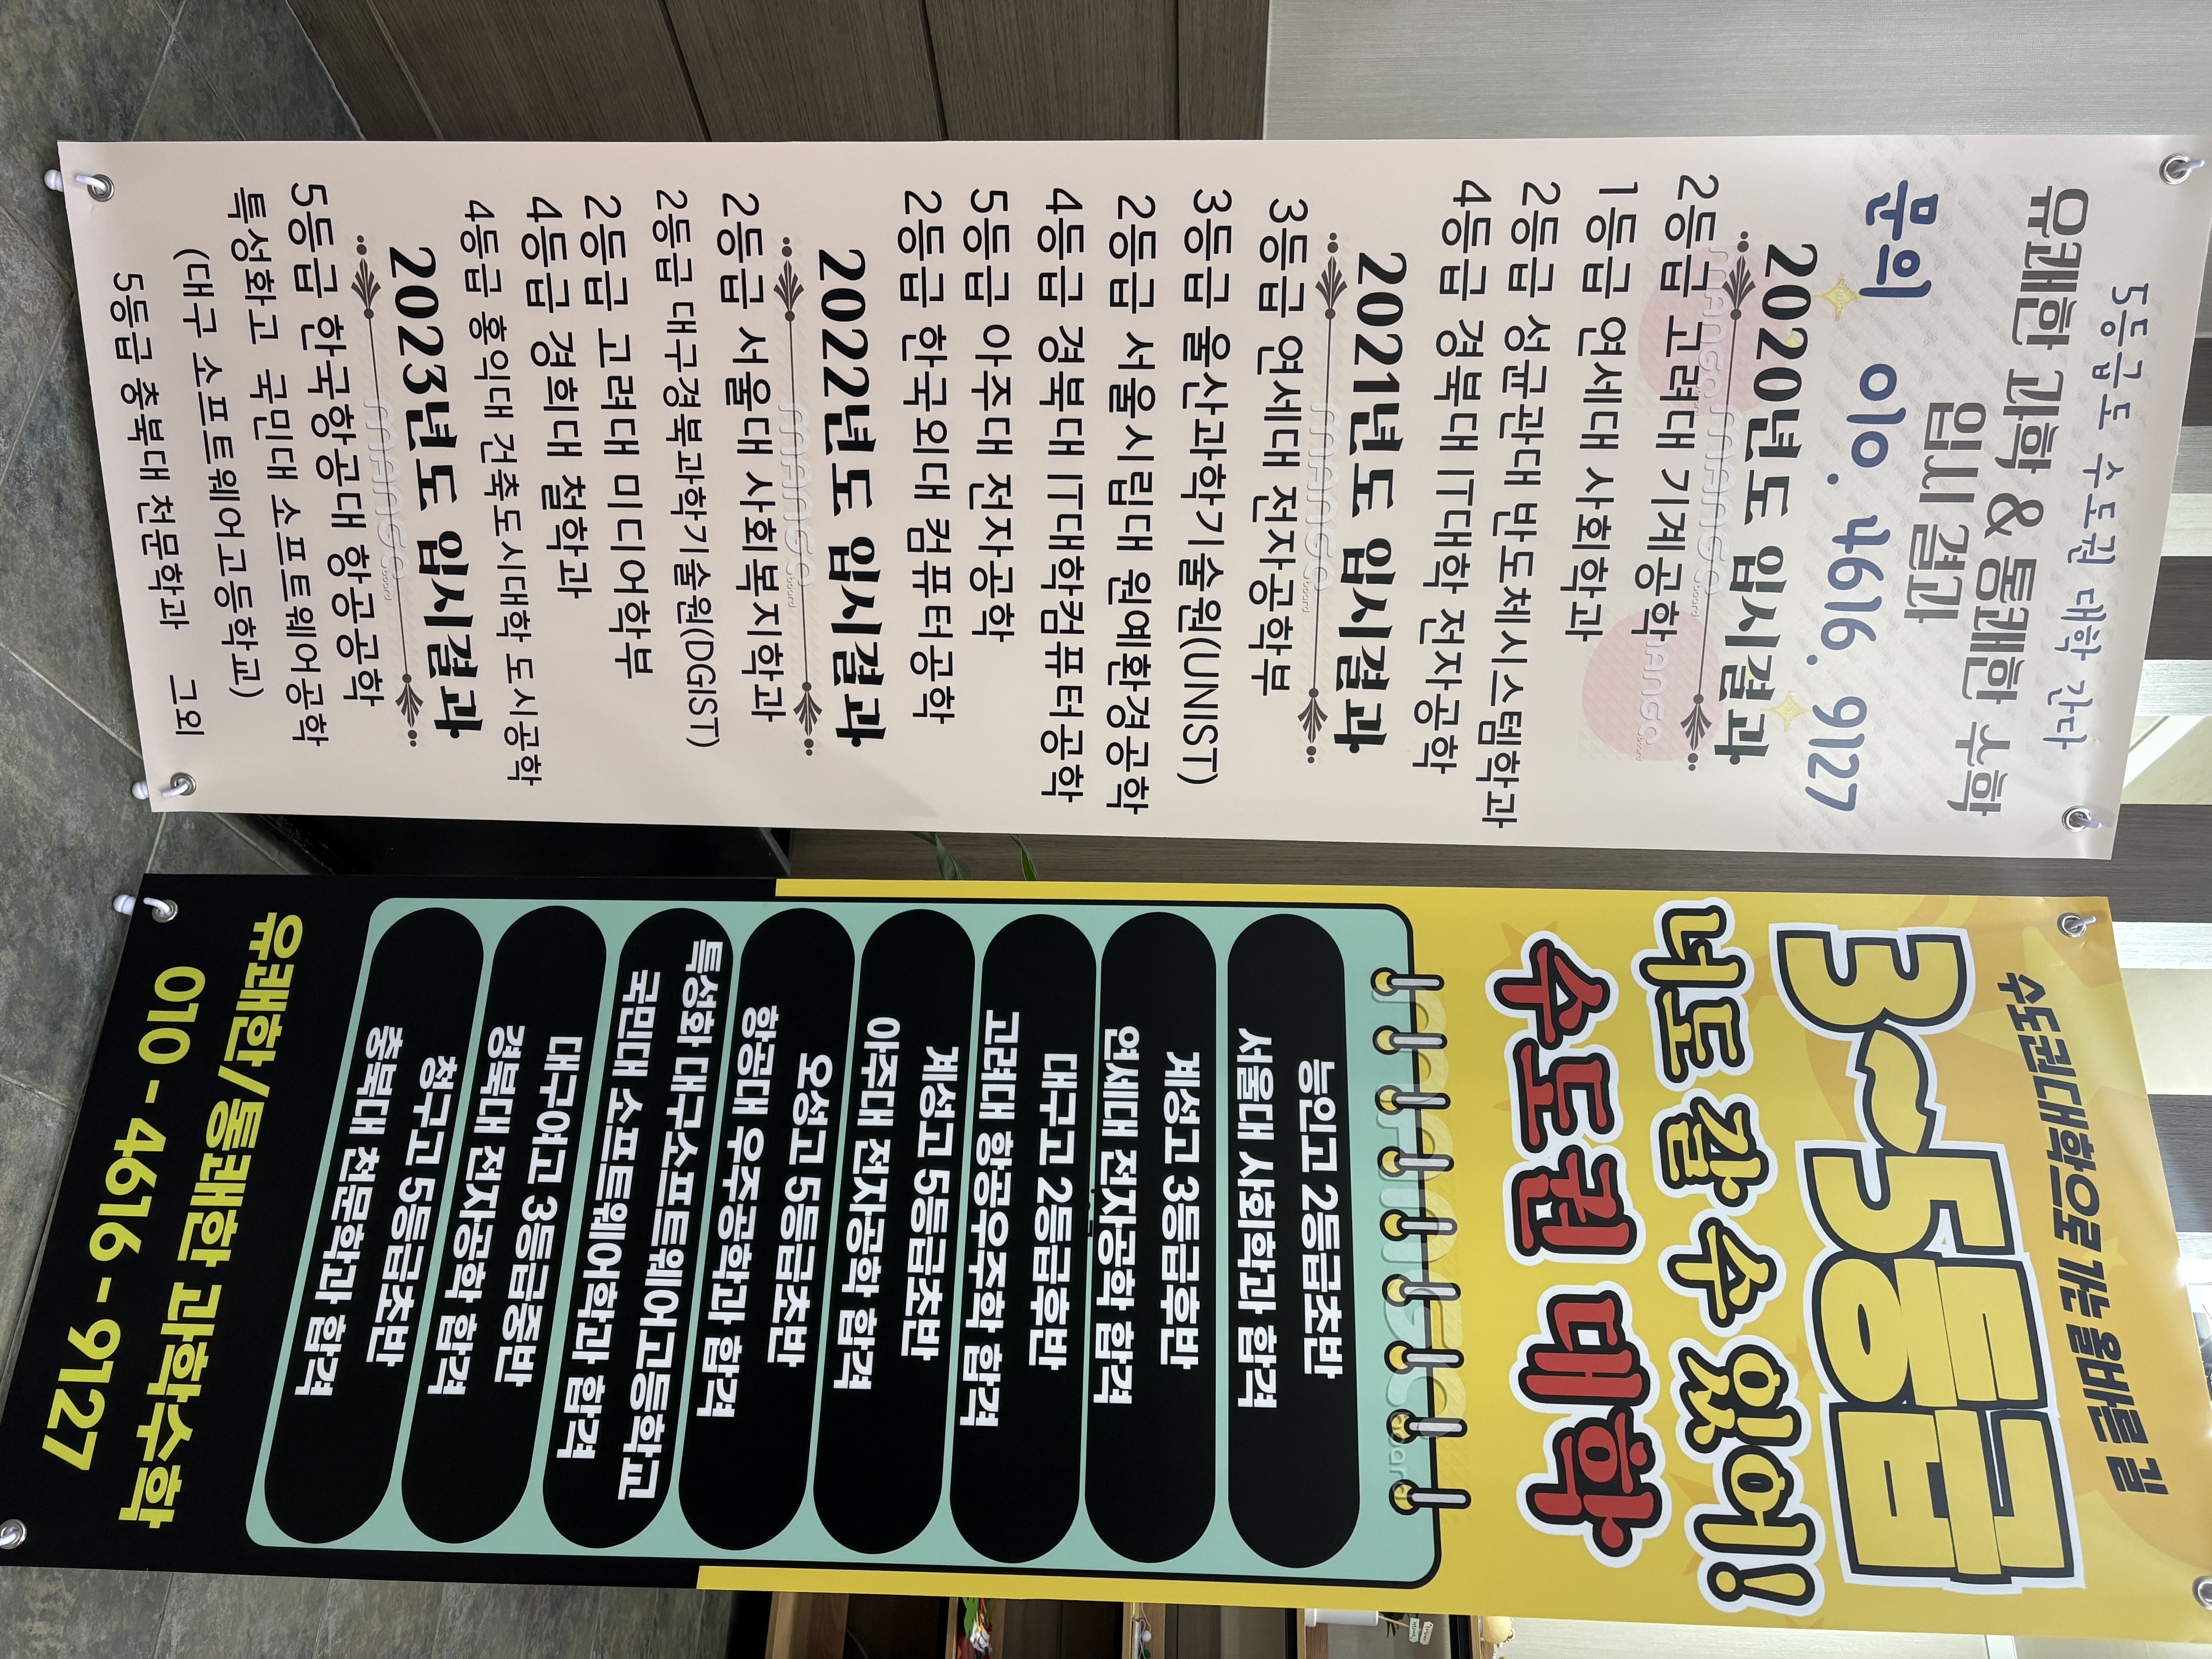 5등급도 수도권 대학 간다
유쾌한 과학 & 통쾌한 수학
입시 결과
문의 010. 4616. 9127
2020년도 입시결과
2등급 고려대 기계공학
1등급 연세대 사회학과
2등급 성균관대 반도체시스템학과
4등급 경북대 IT대학 전자공학
2021년도 입시결과
3등급 연세대 전자공학부
3등급 울산과학기술원(UNIST)
2등급 서울시립대 원예환경공학
4등급 경북대 IT대학컴퓨터공학
5등급 아주대 전자공학
2등급 한국외대 컴퓨터공학
2022년도 입시결과
2등급 서울대 사회복지학과
2등급 대구경북과학기술원(DGIST)
2등급 고려대 미디어학부
4등급 경희대 철학과
4등급 홍익대 건축도시대학 도시공학
2023년도 입시결과
5등급 한국항공대 항공공학
특성화고 국민대 소프트웨어공학
(대구 소프트웨어고등학교)
5등급 충북대 천문학과 그외
수도권대학으로 가는 올바른 길
3~5등급
너도 갈 수 있어!
수도권 대학
능인고 2등급초반
서울대 사회학과 합격
계성고 3등급후반
연세대 전자공학과 합격
대구고 2등급후반
고려대 항공우주학 합격
계성고 5등급초반
아주대 전자공학 합격
오성고 5등급초반
항공대 우주공학과 합격
특성화 대구소프트웨어고등학교
국민대 소프트웨어학과 합격
대구여고 3등급중반
경북대 전자공학 합격
청구고 5등급초반
충북대 천문학과 합격
유쾌한/통쾌한 과학수학
010 - 4616 - 9127